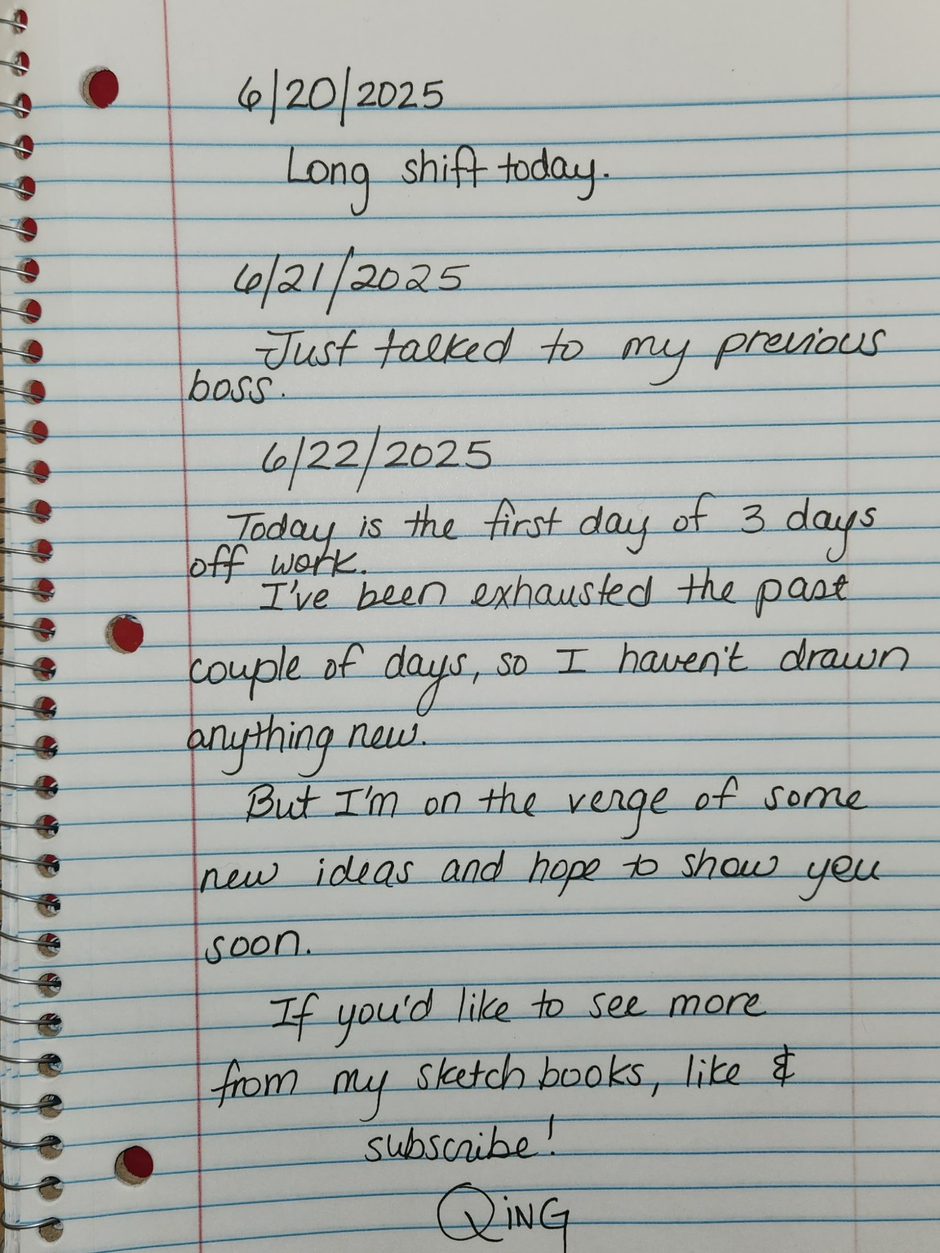 6/20/2025
Long shift today.
6/21/2025
Just talked to my previous
boss.
6/22/2025
Today is the first day of 3 days
off work.
I've been exhausted the past
couple of days, so I haven't drawn
anything new.
But I'm on the verge of some
new ideas and hope to show you
soon.
If you'd like to see more
from my sketch books, like &
subscribe!
QiNG